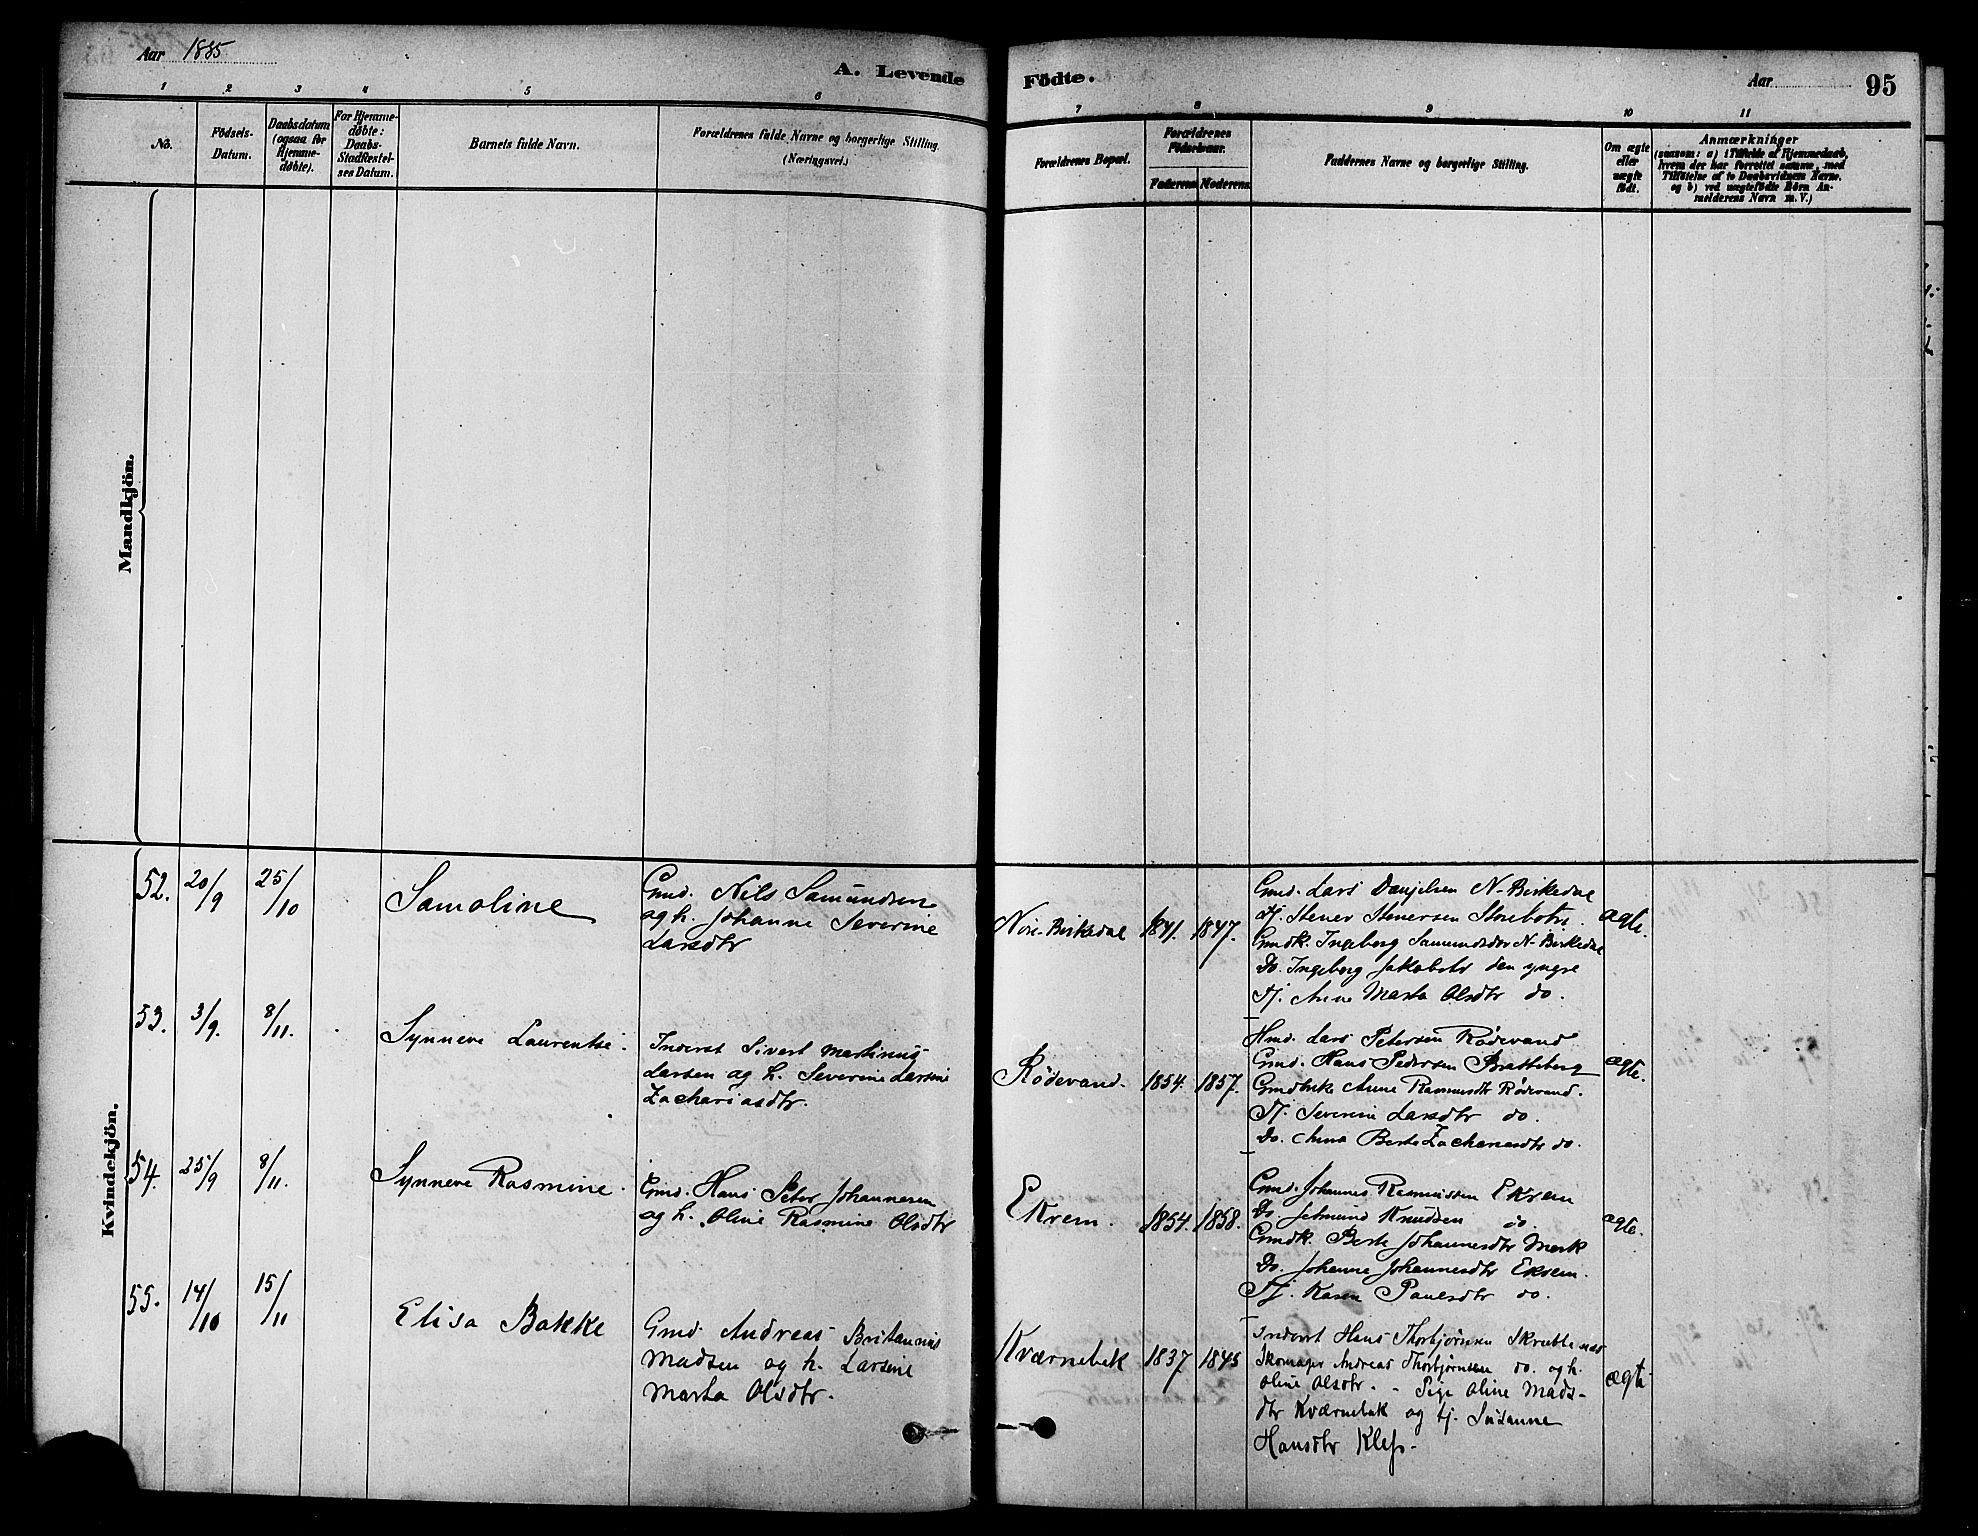 Aar 1885
A. Levende Födte.
Aar 95
1 2 3 4 5 6 7 8 9 10 11
No.
Födsels-
Datum.
Daabsdatum
(ogsaa for
Hjemme-
døbte).
For Hjemme-
døbte:
Daabs-
Stadfæstel-
ses Datum.
Barnets fulde Navn.
Forældrenes fulde Navne og borgerlige Stilling.
(Næringsvei.)
Forældrenes Bopæl.
Forældrenes
Födselsaar.
Faderens. Moderens.
Faddernes Navne og borgerlige Stilling.
Om ægte
eller
uægte
födt.
Anmærkninger
(saasom: a) i Tilfælde af Hjemmedaab,
hvem der har forrettet samme, med
Tilföielse af to Daabsvidners Navne.
og b) ved uægtefödte Börn An-
melderens Navn m. V.)
Mandkjön.
Kvindekjön.
52. 20/9 25/10
Samoline
Gmd. Nils Samundsen
og h. Johanne Severine
Larsdtr
Nore-Birkedal 1841. 1847.
Gmd. Lars Danjelsen N-Birkedal
Tj. Stener Stenersen
Gmdk. Ingeborg Samundsdtr N-Birkedal
Do. Ingeborg Jakobsdtr den yngre
Tj. Anne Marta Olsdtr do.
ægte.
53. 3/9. 8/11.
Synneve Laurentse.
Inderst Sivert Martinus
Larsen og h. Severine Larsine
Zachariasdtr.
Rødevand. 1854. 1857.
Hmd. Lars Petersen Rødevand
Gmd. Hans Pedersen Bratteberg
Gmdbrke Anne Rasmusdtr Rødevand.
Tj. Severine Larsdtr do
Do. Anna Berte Zachariasdtr do.
ægte.
54. 25/9 8/11.
Synneve Rasmine.
Gmd. Hans Peter Johannesen
og h. Oline Rasmine Olsdtr
Ekrem. 1854. 1858.
Gmd. Johannes Rasmussen Ekrem
Do. Jetmund Knudsen do.
Gmdk. Berte Johannesdtr Mork
Do. Johanne Johannesdtr Ekrem.
Tj. Karen Paulsdtr do.
ægte.
55. 14/10 15/11
Elisa Bakke
Gmd. Andreas Britannus
Madsen og h. Larsine
Marta Olsdtr.
Kværnebak 1837 1845
Inderst Hans Thorbjørnsen
Skomager Andreas Thorbjørnsen do. og h.
Oline Olsdtr. - Pige Oline Mads-
dtr Kværnebak og tj. Susanne
Hansdtr Klep.
ægte